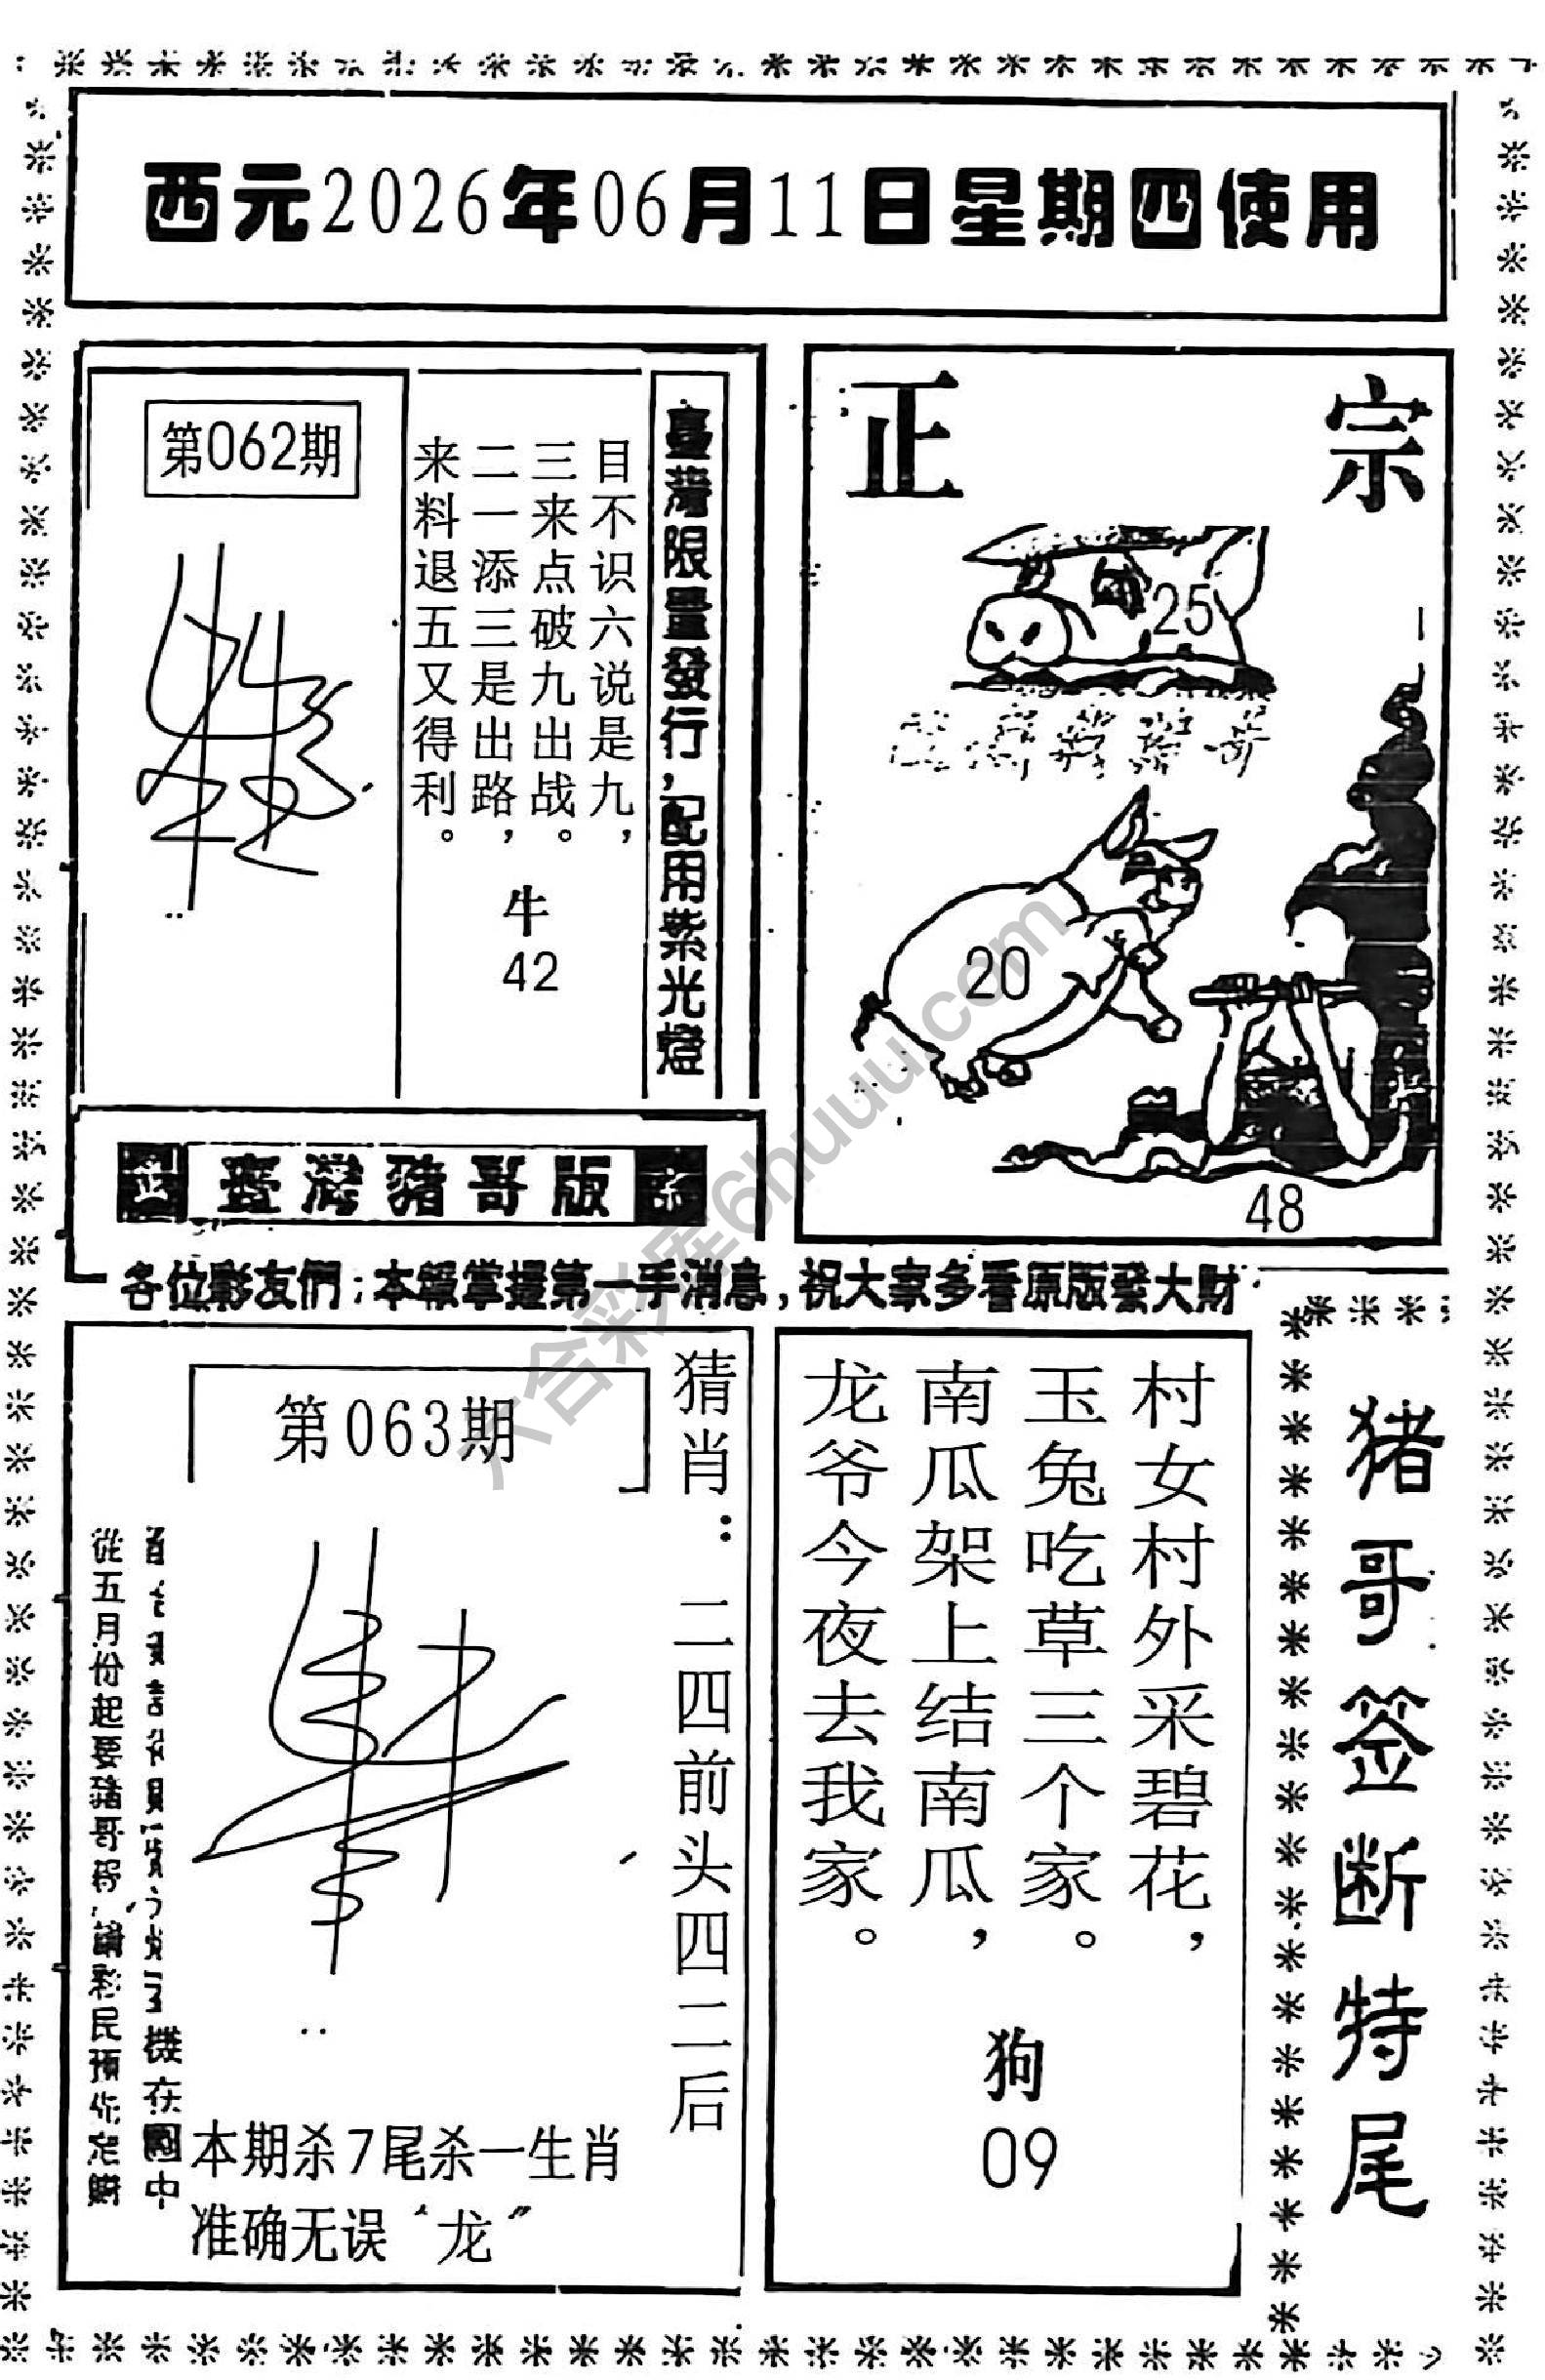 西元2026年06月11日星期四使用
第062期
目不识六说是九，
三来点破九出战。
二一添三是出路，
来料退五又得利。
牛
42
臺灣限量發行，配用紫光燈
正宗
25
20
48
臺灣豬哥版
各位彩友們：本報掌握第一手消息，祝大家多看原版發大財
第063期
猜肖：二四前头四二后
從五月份起要豬哥
彩民預
機在國中
本期杀7尾杀一生肖
准确无误“龙”
村女村外采碧花，
玉兔吃草三个家。
南瓜架上结南瓜，
龙爷今夜去我家。
狗
09
猪哥签断特尾
六合彩库6huuu.com